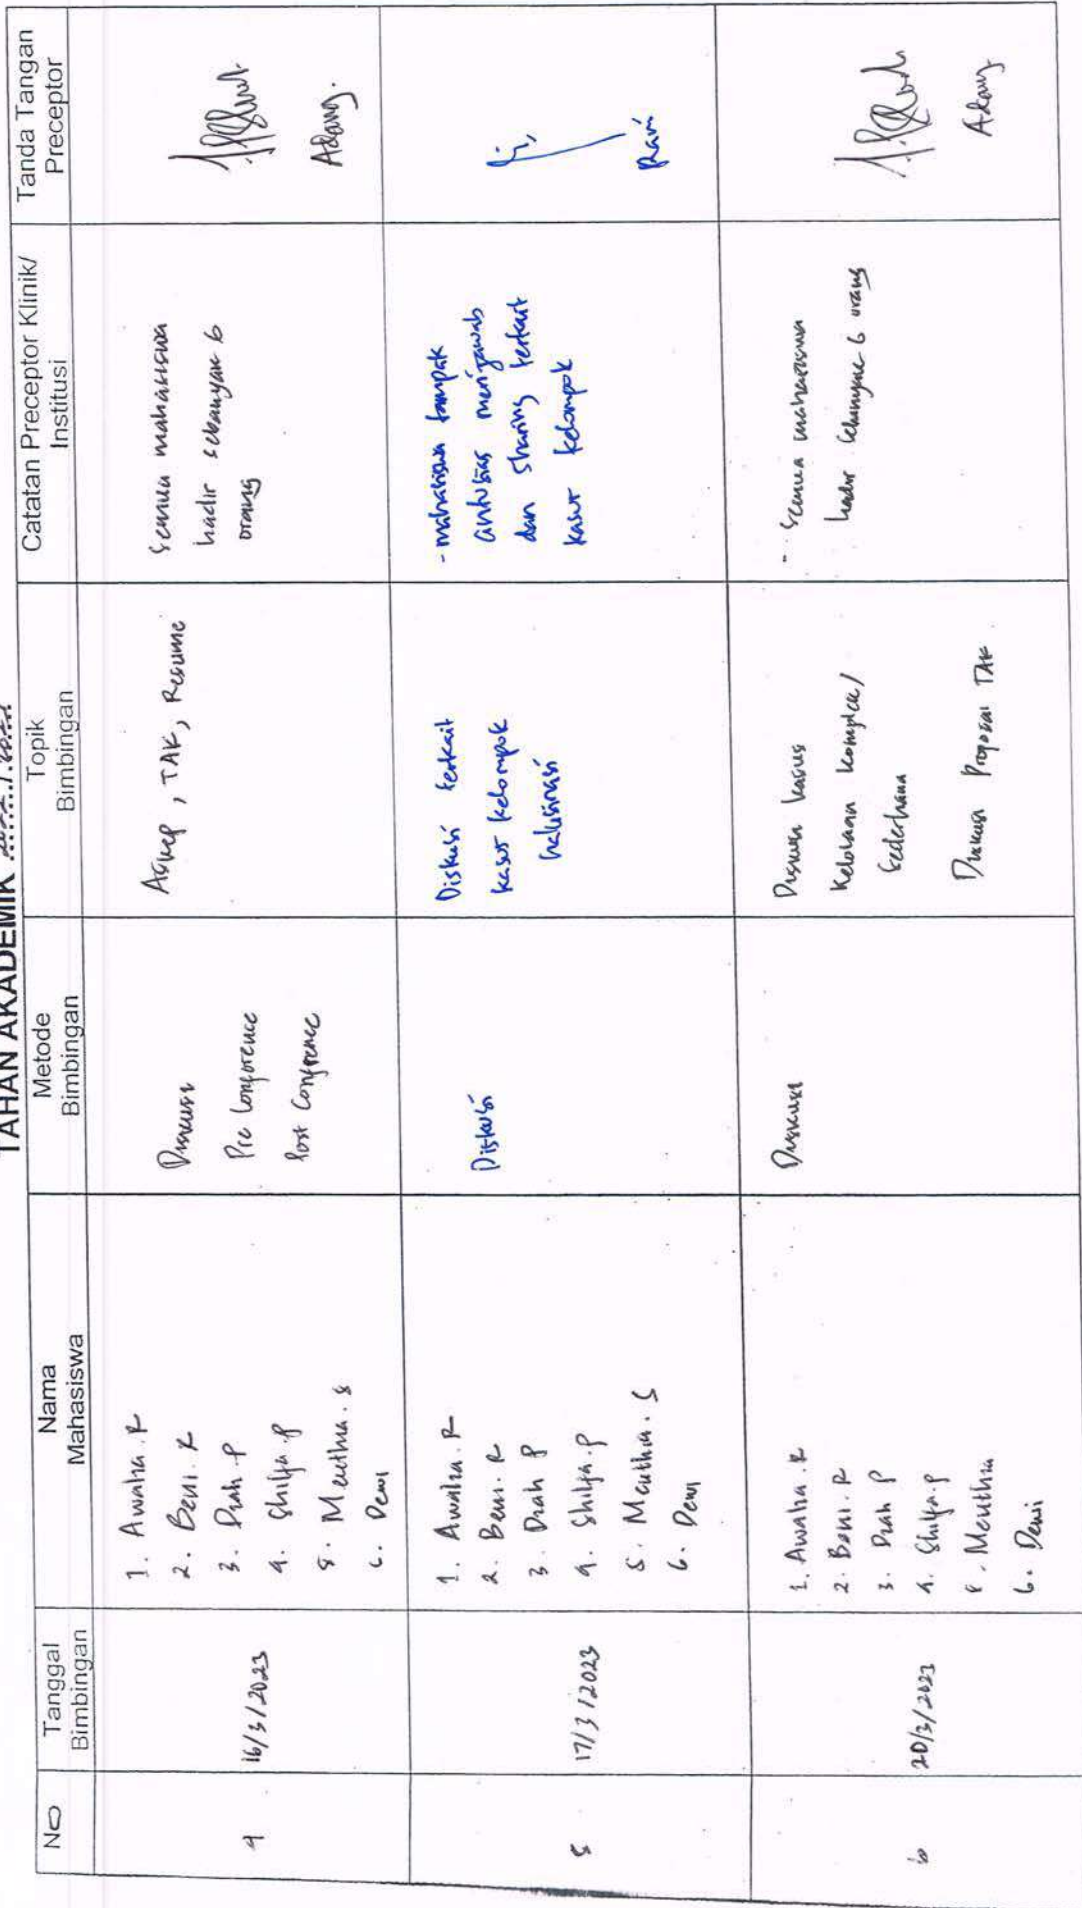 TAHAN AKADEMIK
NO
Tanggal
Bimbingan
Nama
Mahasiswa
Metode
Bimbingan
Topik
Bimbingan
Catatan Preceptor Klinik/
Institusi
Tanda Tangan
Preceptor
4
16/3/2023
1. Awalia. R
2. Beni. R
3. Diah. P
4. Shilfa. P
5. Meuthia. S
6. Dewi
Diskusi
Pre Conference
Post Conference
Askep, TAK, Resume
Semua mahasiswa
hadir sebanyak 6
orang
Adang.
5
17/3/2023
1. Awalia. R
2. Beni. R
3. Diah P
4. Shilfa. P
5. Meuthia. S
6. Dewi
Diskusi
Diskusi terkait
kasus kelompok
halusinasi
- mahasiswa tampak
antusias menjawab
dan sharing terkait
kasus kelompok
Rani
6
20/3/2023
1. Awalia. R
2. Beni. R
3. Diah P
4. Shilfa. P
5. Meuthia
6. Dewi
Diskusi
Diskusi kasus
Kelolaan komplek/
sederhana
Diskusi Proposal TAK
- Semua mahasiswa
hadir sebanyak 6 orang
Adang